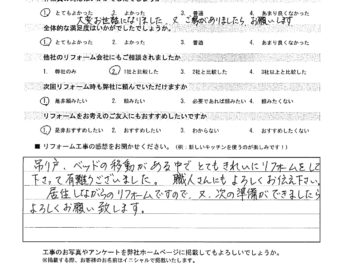 ① とてもよかった 2. よかった 3. 普通 4. あまり良くなかった
大変お世話になりました。又、ご縁がありましたら、お願いします
全体的な満足度はいかがでしたでしょうか。
① とてもよかった 2. よかった 3. 普通 4. あまり良くなかった
他社のリフォーム会社にもご相談されましたか
1. 弊社のみ ② 1社と比較した 3. 2社と比較した 4. 3社以上と比較した
次回リフォーム時も弊社に頼んでいただけますか
① 是非頼みたい 2. 頼みたい 3. 必要であれば頼みたい 4. 頼みたくない
リフォームをお考えのご友人にもおすすめしたいですか
① 是非おすすめしたい 2. おすすめしたい 3. わからない 4. おすすめしたくない
■ リフォーム工事の感想をお聞かせください。（例：新しいキッチンを使うのが楽しみです！）
吊り戸、ベッドの移動がある中でとてもきれいにリフォームをして
下さって有難うございました。職人さんにもよろしくお伝え下さい。
居住しながらのリフォームですので、又、次の準備ができましたら
よろしくお願い致します。
工事のお写真やアンケートを弊社ホームページに掲載してもよろしいでしょうか。
※掲載する際、お客様のお名前はイニシャルで掲載いたします。